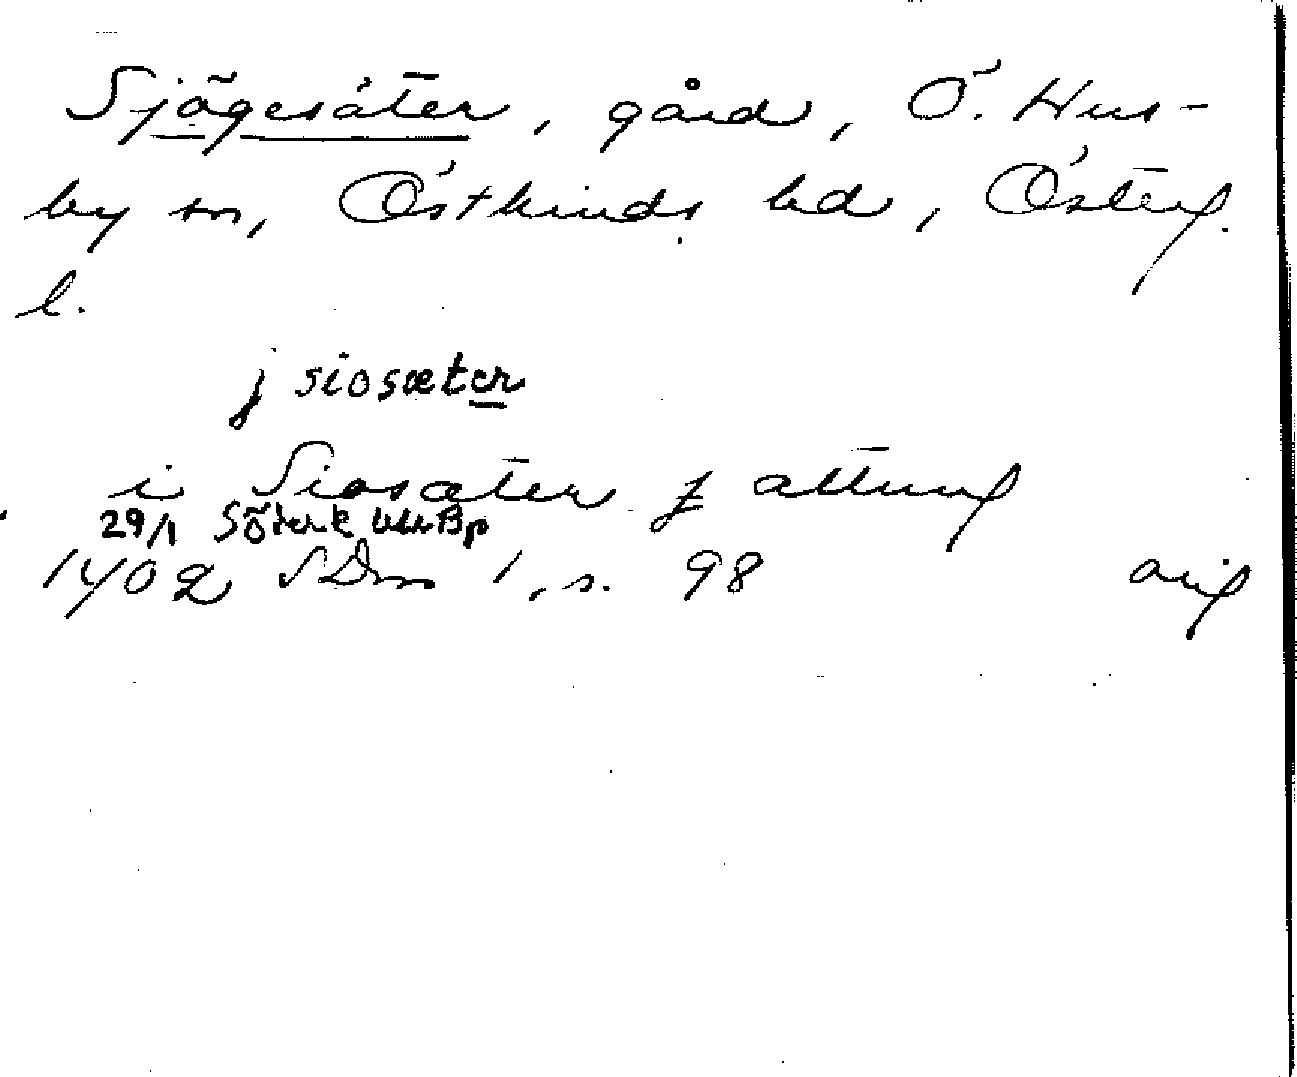 Sjögesäter, gård, Ö. Hus-
by sn, Östkinds hd, Österg.
l.
j siosæter
i Siosæter j attung
29/1 Söderk
1402 SDns 1, s. 98 orig